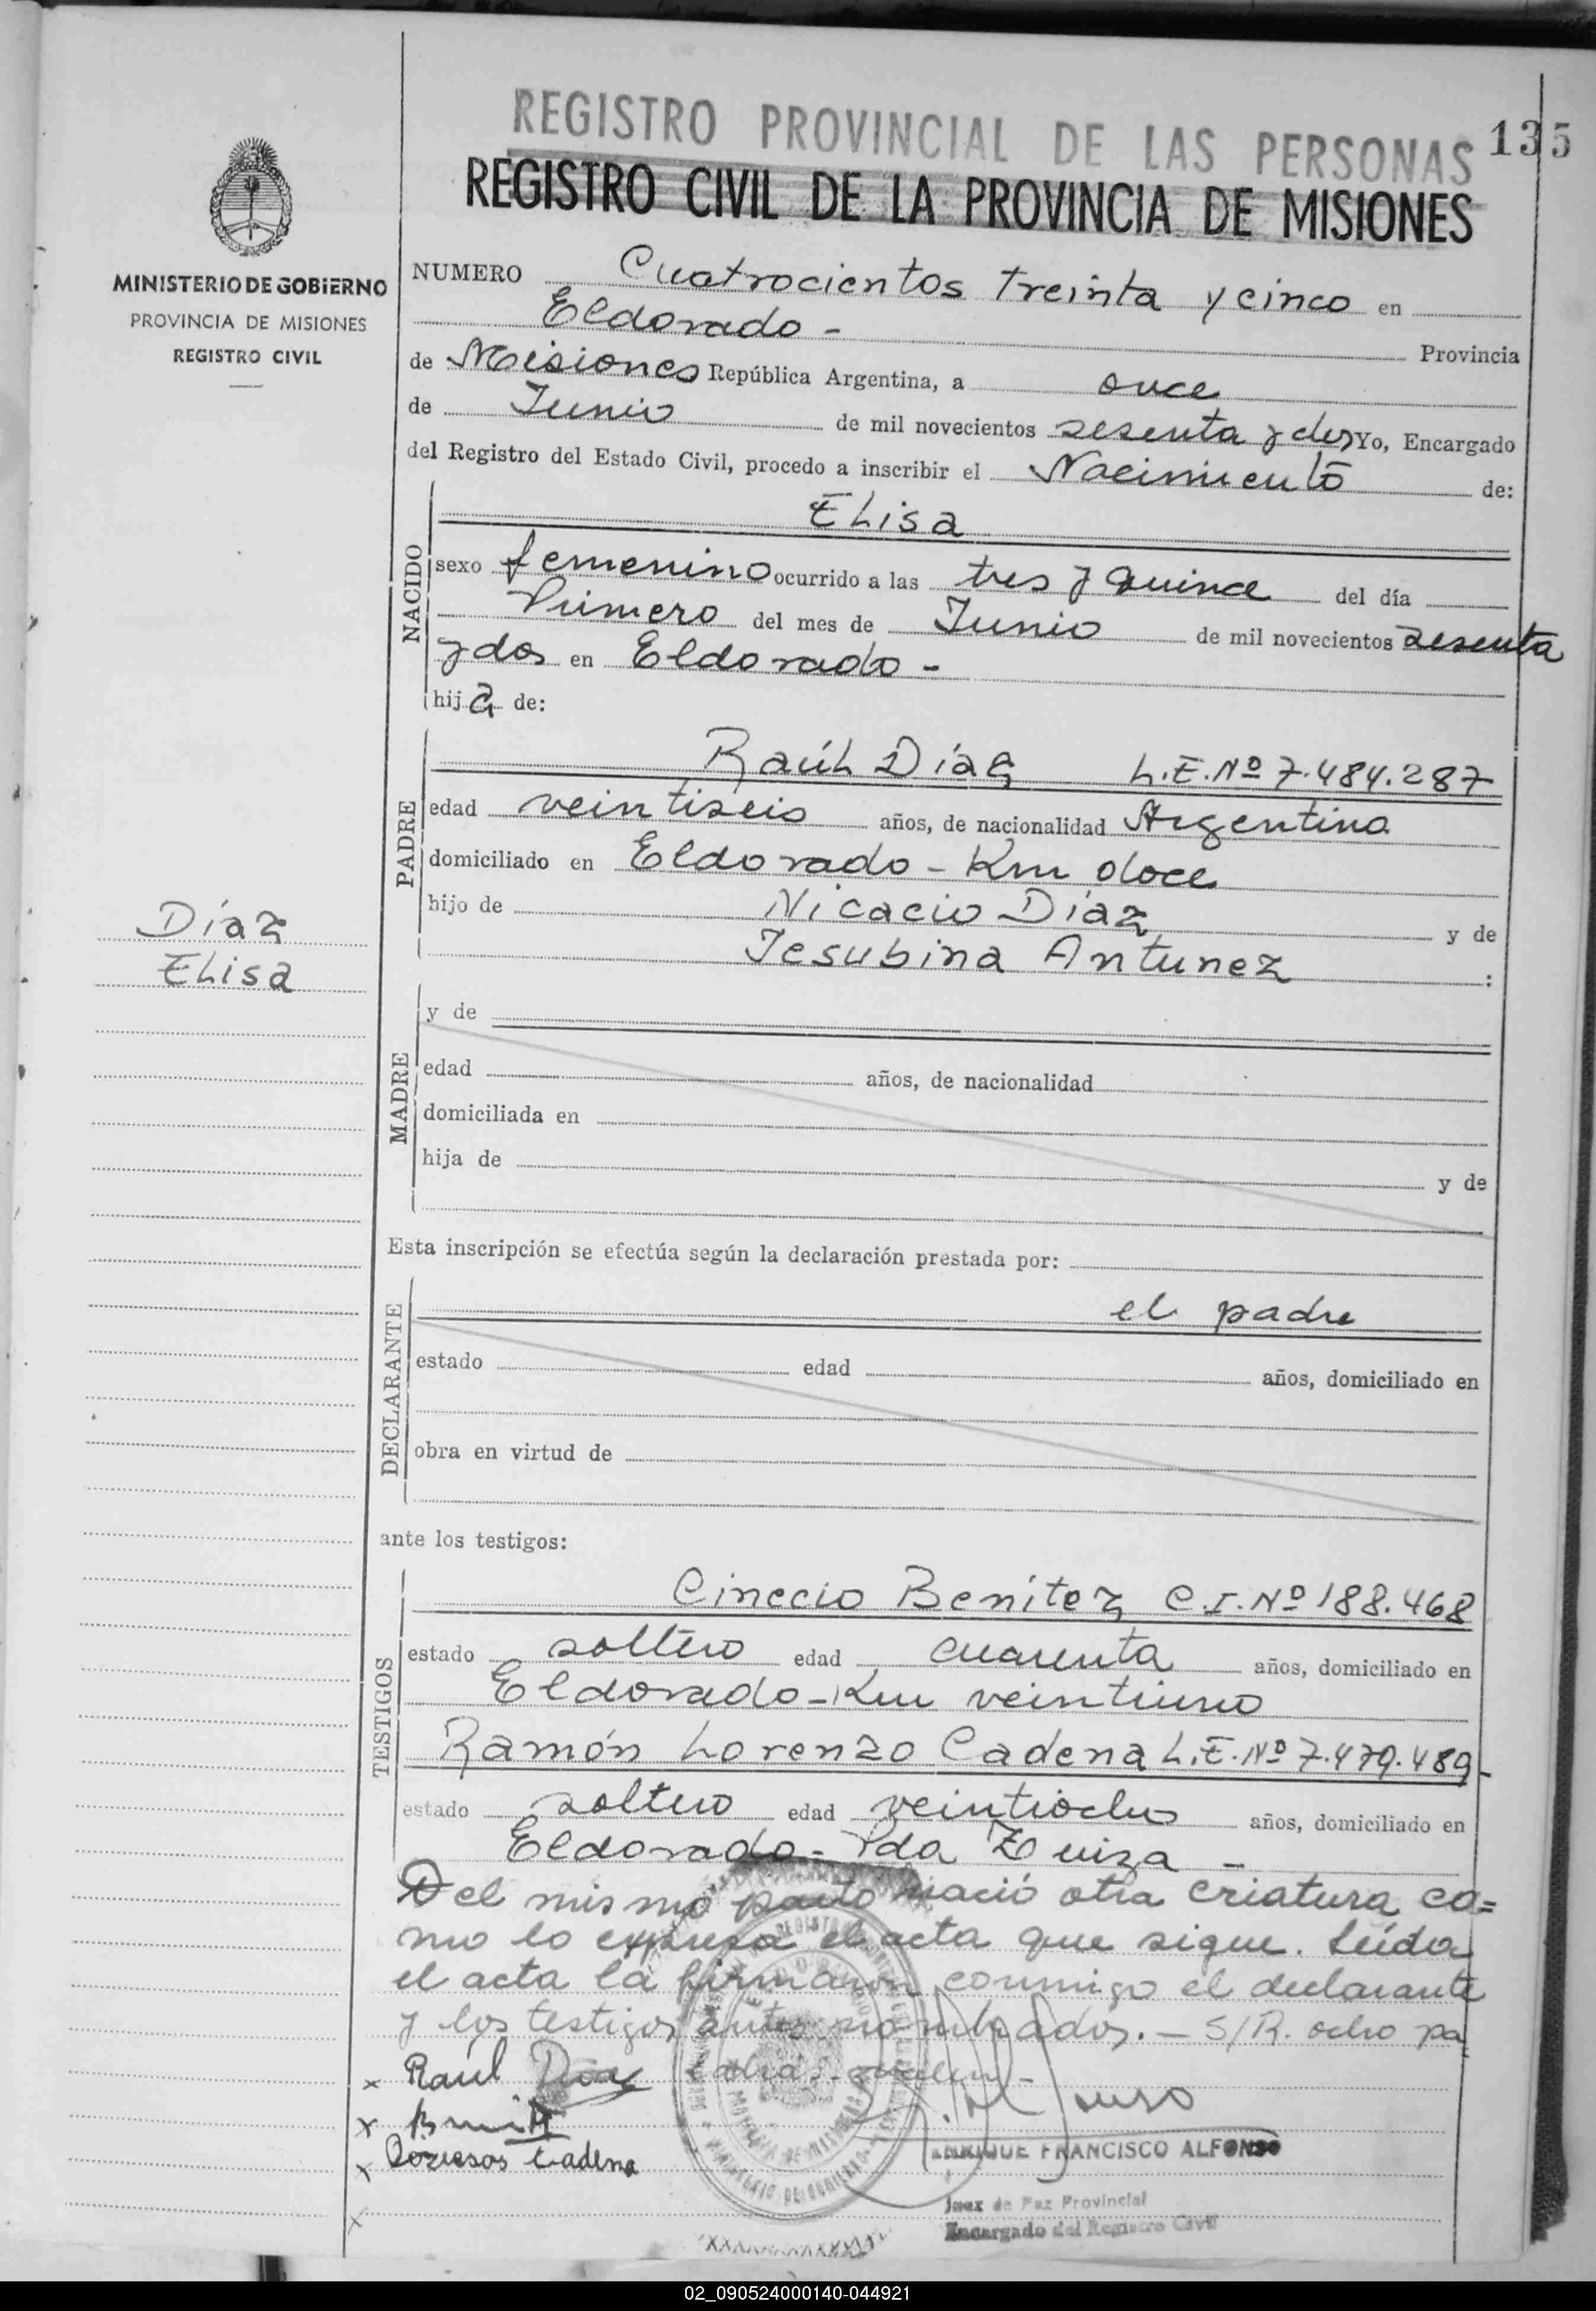 REGISTRO PROVINCIAL DE LAS PERSONAS 135
REGISTRO CIVIL DE LA PROVINCIA DE MISIONES
MINISTERIO DE GOBIERNO
PROVINCIA DE MISIONES
REGISTRO CIVIL
NUMERO Cuatrocientos treinta y cinco en
Eldorado - Provincia
de Misiones República Argentina, a once
de Junio de mil novecientos sesenta y dos Yo, Encargado
del Registro del Estado Civil, procedo a inscribir el Nacimiento de:
NACIDO
Elisa
sexo femenino ocurrido a las tres y quince del día
Primero del mes de Junio de mil novecientos sesenta
y dos en Eldorado -
hija de:
PADRE
Raúl Díaz L.E.Nº 7.484.287
edad veintiseis años, de nacionalidad Argentina
domiciliado en Eldorado - Km doce
hijo de Nicacio Díaz y de
Jesubina Antunez :
Díaz
Elisa
MADRE
y de
edad años, de nacionalidad
domiciliada en
hija de y de
Esta inscripción se efectúa según la declaración prestada por:
DECLARANTE
el padre
estado edad años, domiciliado en
obra en virtud de
ante los testigos:
TESTIGOS
Cinecio Benítez C.I.Nº 188.468
estado soltero edad cuarenta años, domiciliado en
Eldorado - Km veintiuno
Ramón Lorenzo Cadena L.E.Nº 7.479.489-
estado soltero edad veintiocho años, domiciliado en
Eldorado - Pda -
Del mismo parto nació otra criatura co=
mo lo expresa el acta que sigue. Leída
el acta la firmaron conmigo el declarante
y los testigos antes nombrados. - S/R. ocho pa
x Raúl Diaz
x
x Cadena
x
ENRIQUE FRANCISCO ALFONSO
Juez de Paz Provincial
Encargado del Registro Civil
02_090524000140-044921